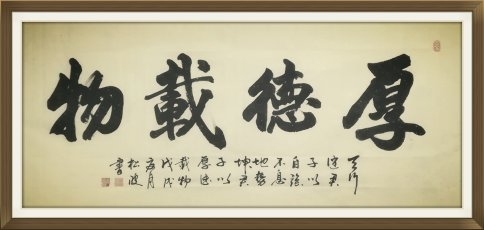 厚德載物
天行
健君
子以
自強
不息
地勢
坤君
子以
厚德
載物
戊戌
月
松波
書